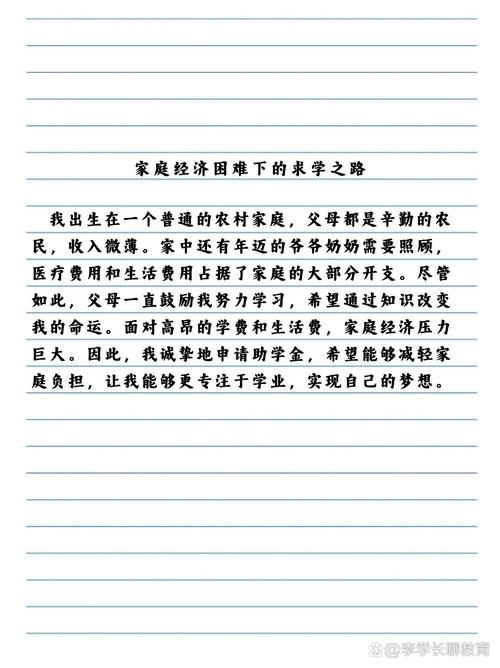 家庭经济困难下的求学之路
我出生在一个普通的农村家庭，父母都是辛勤的农
民，收入微薄。家中还有年迈的爷爷奶奶需要照顾，
医疗费用和生活费用占据了家庭的大部分开支。尽管
如此，父母一直鼓励我努力学习，希望通过知识改变
我的命运。面对高昂的学费和生活费，家庭经济压力
巨大。因此，我诚挚地申请助学金，希望能够减轻家
庭负担，让我能够更专注于学业，实现自己的梦想。
@李学长聊教育